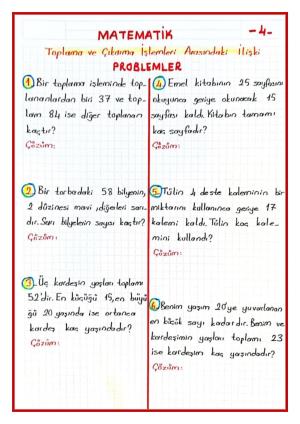 MATEMATİK
-4-
Toplama ve Çıkarma İşlemleri Arasındaki İlişki
PROBLEMLER
1 Bir toplama işleminde top-
lananlardan biri 37 ve top-
lam 84 ise diğer toplanan
kaçtır?
Çözüm:
2 Bir torbadaki 58 bilyenin,
2 düzinesi mavi, diğerleri sarı-
dır. Sarı bilyelerin sayısı kaçtır?
Çözüm:
3 Üç kardeşin yaşları toplamı
52'dir. En küçüğü 15, en büyü
ğü 20 yaşında ise ortanca
kardeş kaç yaşındadır?
Çözüm:
4 Emel kitabının 25 sayfasını
okuyunca geriye okunacak 15
sayfası kaldı. Kitabın tamamı
kaç sayfadır?
Çözüm:
5 Tülin 4 deste kaleminin bir
miktarını kullanınca geriye 17
kalemi kaldı. Tülin kaç kale-
mini kullandı?
Çözüm:
6 Benim yaşım 20'ye yuvarlanan
en küçük sayı kadardır. Benim ve
kardeşimin yaşları toplamı 23
ise kardeşim kaç yaşındadır?
Çözüm: